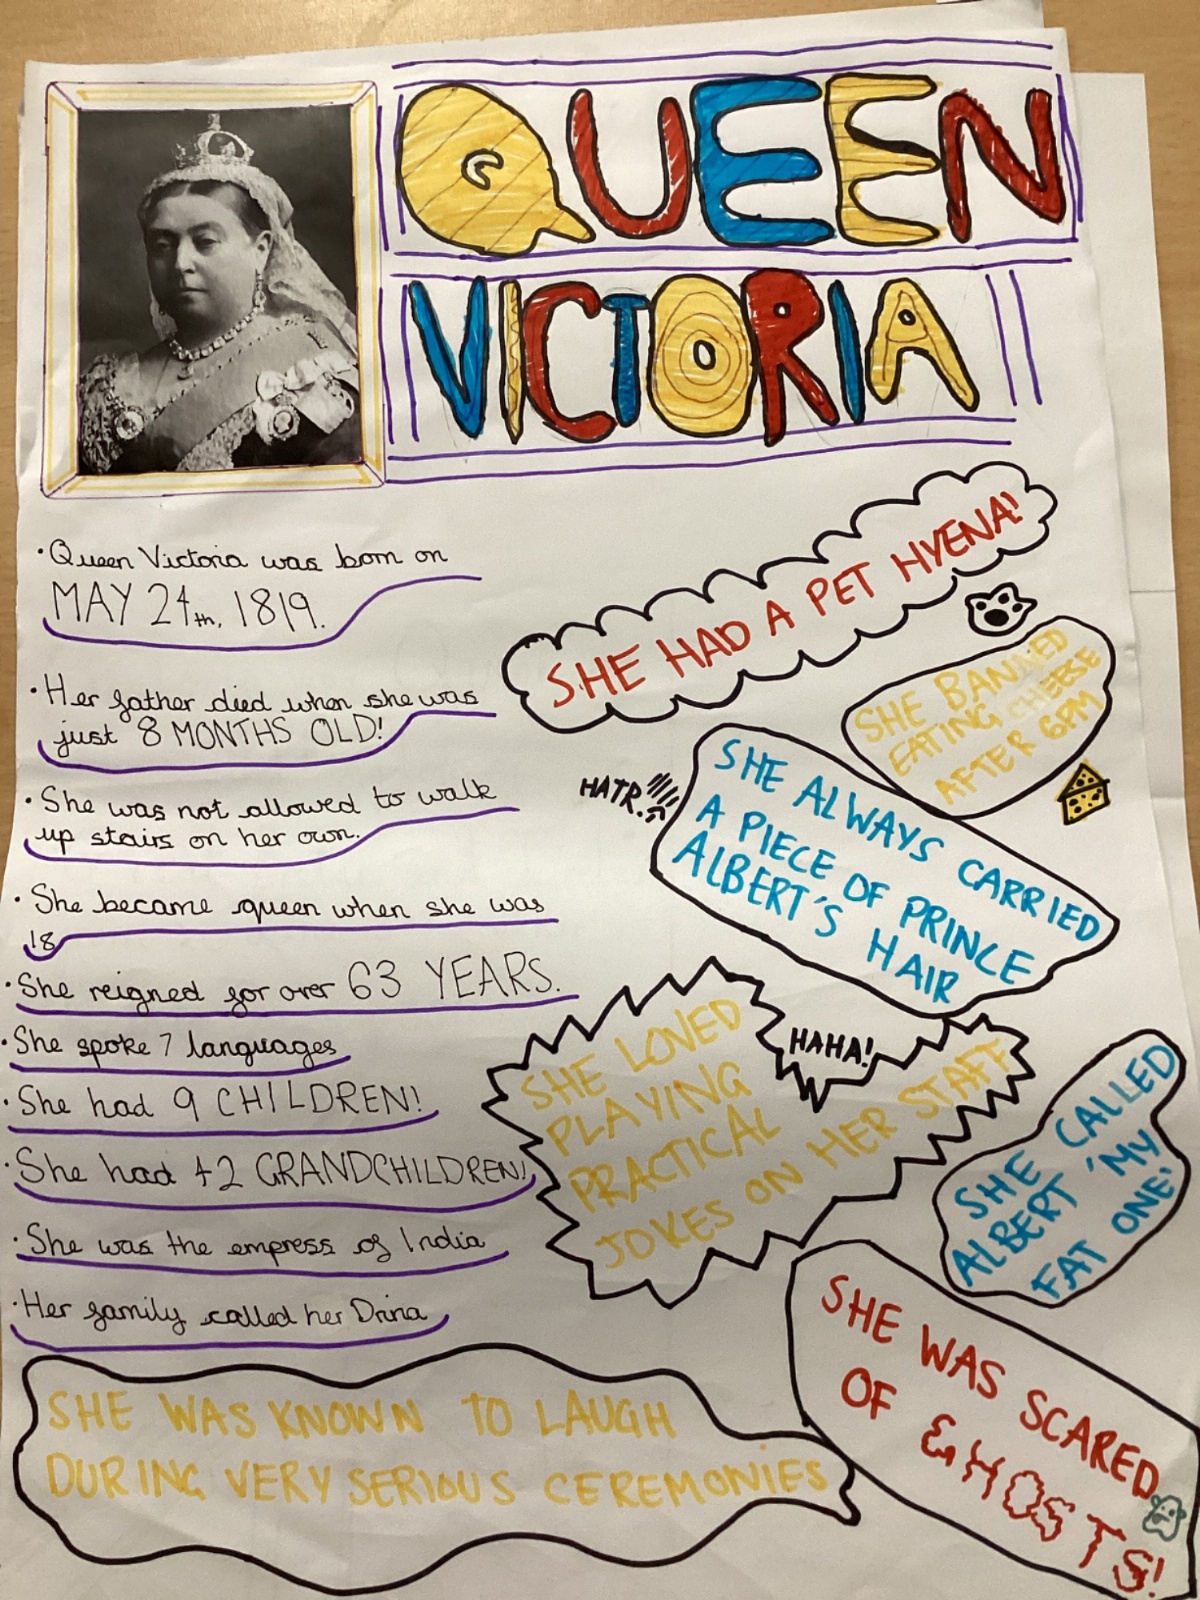 QUEEN
VICTORIA
• Queen Victoria was born on
MAY 24th, 1819.
• Her father died when she was
just 8 MONTHS OLD!
• She was not allowed to walk
up stairs on her own.
• She became queen when she was
18
• She reigned for over 63 YEARS.
• She spoke 7 languages
• She had 9 CHILDREN!
• She had 42 GRANDCHILDREN!
• She was the empress of India
• Her family called her Drina
SHE HAD A PET HYENA!
SHE BANNED
EATING CHEESE
AFTER 6PM
HAIR.
SHE ALWAYS CARRIED
A PIECE OF PRINCE
ALBERT'S HAIR
SHE LOVED
PLAYING
PRACTICAL
JOKES ON HER STAFF
HAHA!
SHE CALLED
ALBERT 'MY
FAT ONE!'
SHE WAS SCARED
OF GHOSTS!
SHE WAS KNOWN TO LAUGH
DURING VERY SERIOUS CEREMONIES